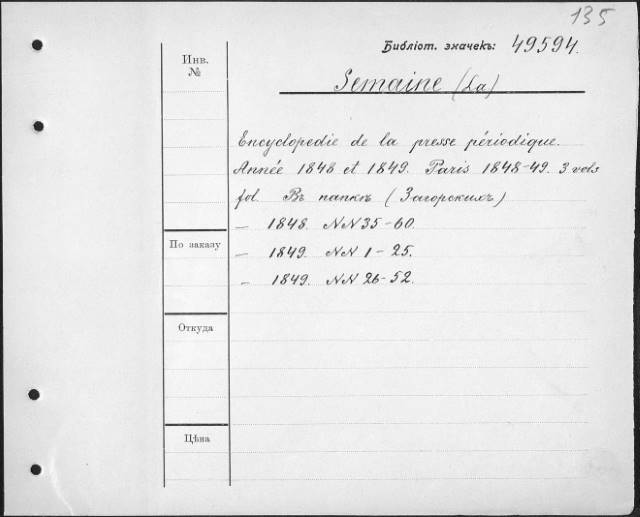 135
Библіот. значекъ: 49594.
Semaine (La)
Инв.
№
Encyclopedie de la presse périodique.
Année 1848 et 1849. Paris 1848-49. 3 vols
fol. Въ папкѣ (Загорскихъ)
— 1848. NN 35-60.
По заказу
— 1849. NN 1-25.
— 1849. NN 26-52.
Откуда
Цѣна
135